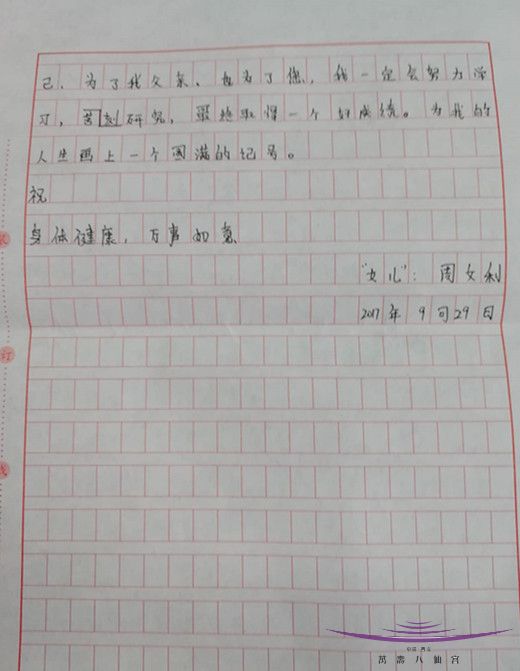 己、为了我父亲、也为了您，我一定会努力学
习，苦刻研究，最终取得一个好成绩。为我的
人生画上一个圆满的记号。
祝
身体健康，万事如意
“女儿”：周文利
2017年9月29日
订
线
万寿八仙宫